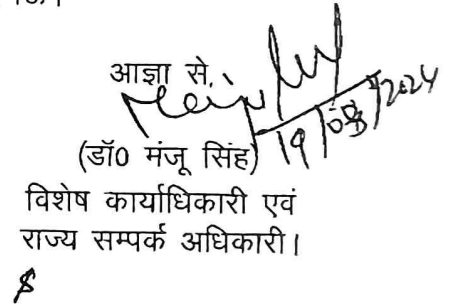 आज्ञा से,
19/08/2024
(डॉ0 मंजू सिंह)
विशेष कार्याधिकारी एवं
राज्य सम्पर्क अधिकारी।